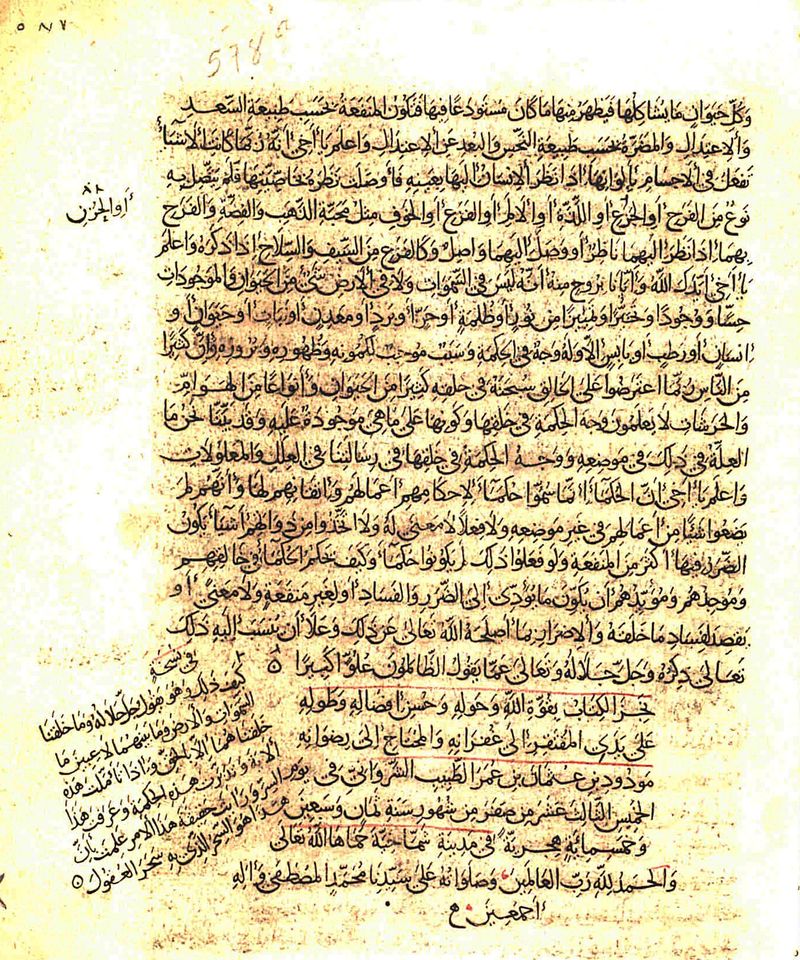 ٥٨٧
578
وكل حيوان ما يشاكلها فيظهر منها ما كان مستودعا فيها فتكون المنفعة بحسب طبيعة السعد
والاعتدال والمضرة بحسب طبيعة النحس والبعد عن الاعتدال واعلم يا أخي أنه ربما كانت الأشياء
تفعل في الأجسام بألوانها إذا نظر الإنسان إليها بعينه فأوصلت نظره بخاصيتها فلم يتصل به
نوع من الفرح أو الجزع أو اللذة أو الألم أو الفزع أو الخوف مثل محبة الذهب والفضة والفرح
أو الحزن
بهما إذا نظر إليهما ناظر أو وصل إليهما واصل وكالفزع من السيف والسلاح إذا ذكره واعلم
يا أخي أيدك الله وإيانا بروح منه أنه ليس في السموات ولا في الأرض شيء من الحيوان والموجودات
حسا ووجودا وخبرا من نور أو ظلمة أو حر أو برد أو معدن أو نبات أو حيوان أو
إنسان أو رطب أو يابس إلا وله وجه في الحكمة وسبب موجب لكمونه وظهوره وإن كثيرا
من الناس ربما اعترضوا على الخالق سبحنه في خلقه كثيرا من الحيوان وأنواعا من الهوام
والحرشات لا يعلمون وجه الحكمة في خلقها وكونها على ما هي موجودة عليه وقد بينا نحن ما
العلة في ذلك في موضعه ووجه الحكمة في خلقها في رسالتنا في العلل والمعلولات
واعلم يا أخي أن الحكماء إنما سموا حكماء لإحكامهم أعمالهم وإتقانهم لها وأنهم لم
يضعوا شيئا من أعمالهم في غير موضعه ولا فعلا لا معنى له ولا اتخذوا من دوائهم أشياء يكون
الضرر فيها أكثر من المنفعة ولو فعلوا ذلك لم يكونوا حكماء وكيف بحكم الحكماء وخالقهم
وموجدهم ومؤيدهم أن يكون ما يؤدي إلى الضرر والفساد أو لغير منفعة ولا معنى أو
يقصد لفساد ما خلقه والإضرار بما أصلحه الله تعالى عن ذلك وعلا أن ينسب إليه ذلك
تعالى ذكره وجل جلاله وتعالى عما يقول الظالمون علوا كبيرا
نجز الكتاب بقوة الله وحوله وحسن إفضاله وطوله
على يدي المفتقر إلى غفرانه والمحتاج إلى رضوانه
مودود بن عثمان بن عمر الطبيب الشرواني في يوم
الخميس الثالث عشر من صفر من شهور سنة ثمان وسبعين
وخمسمائة هجرية في مدينة شماخية حماها الله تعالى
والحمد لله رب العالمين وصلواته على سيدنا محمد المصطفى وآله
أجمعين
في نسخة
كيف ذلك وهو يقول جل جلاله وما خلقنا
السموات والأرض وما بينهما لاعبين ما
خلقناهما إلا بالحق وإذا تأملت هذه
الآية وتدبرت هذه الحكمة وعرفت هذا
السر ورأيت حقيقة هذا الأمر علمت بأن
هذا هو السحر الذي به سحر العقول